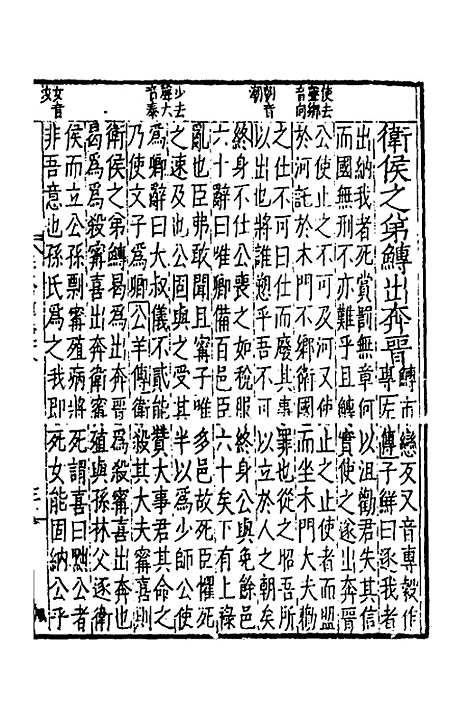 使去聲鄉音向
朝音潮
少去聲大音泰
女音汝
衛侯之弟鱄出奔晉鱄市戀反又音專穀作專左傳子鮮曰逐我者
出納我者死賞罰無章何以沮勸君失其信
而國無刑不亦難乎且鱄實使之遂出奔晉
公使止之不可及河又使止之止使者而盟
於河託於木門不鄉衛國而坐木門大夫勸
之仕不可曰仕而廢其事罪也從之昭吾所
以出也將誰愬乎吾不可以立於人之朝矣
終身不仕公喪之如稅服終身公與免餘邑
六十辭曰唯卿備百邑臣六十矣下有上祿
亂也臣弗敢聞且甯子唯多邑故死臣懼死
之速及也公固與之受其半以為少師公使
為卿辭曰大叔儀不貳能贊大事君其命之
乃使文子為卿公羊傳衛殺其大夫甯喜則
衛侯之弟鱄曷為出奔晉為殺甯喜出奔也
曷為為殺甯喜出奔衛甯殖與孫林父逐衛
侯而立公孫剽甯殖病將死謂喜曰黜公者
非吾意也孫氏為之我即死女能固納公乎